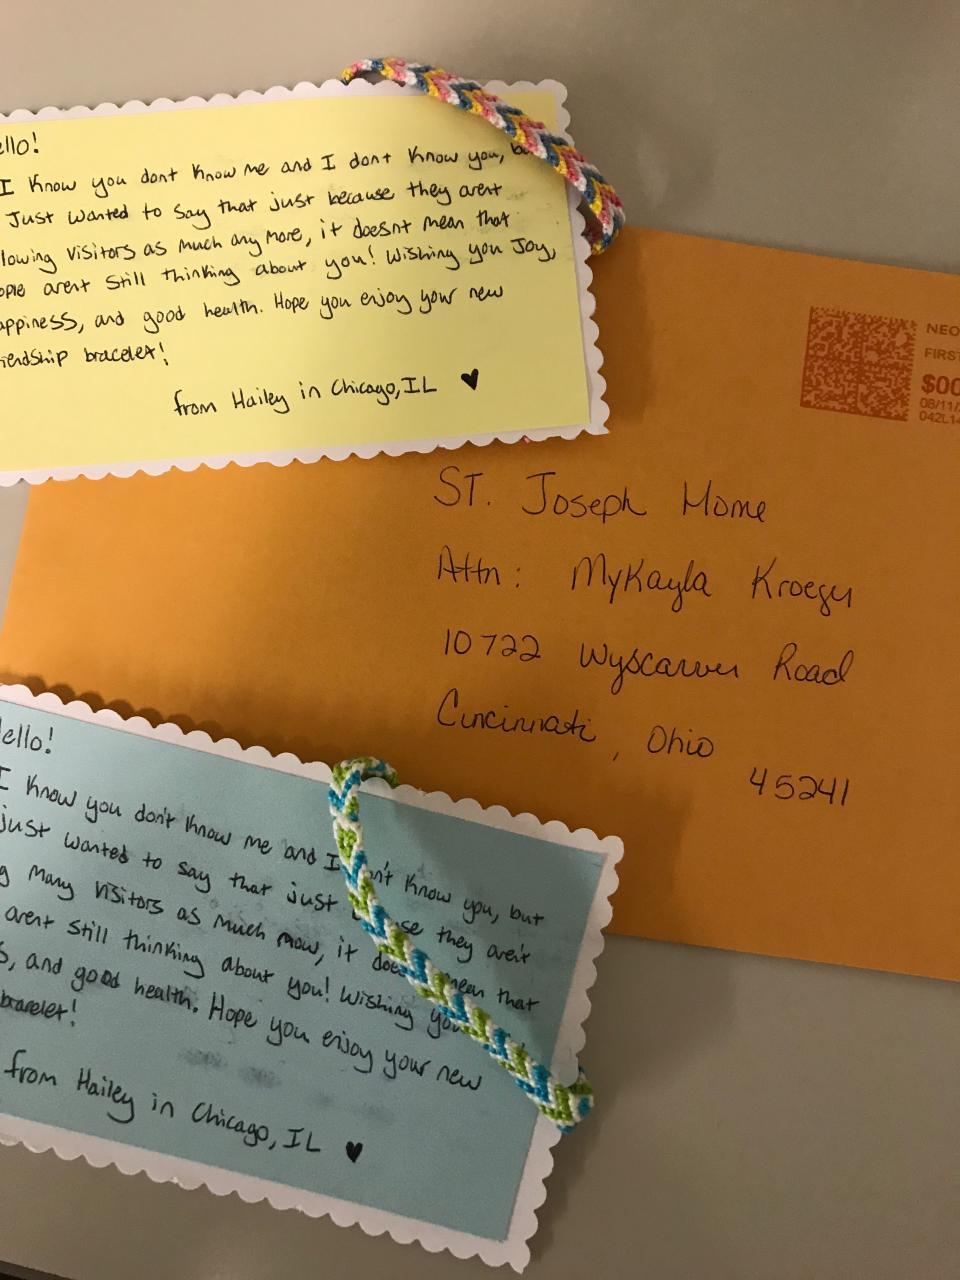 ello!
I Know you dont Know me and I dont Know you, bu
Just wanted to say that just because they arent
lowing visitors as much any more, it doesnt mean that
ople arent still thinking about you! Wishing you Joy,
appiness, and good health. Hope you enjoy your new
iendship bracelet!
from Hailey in Chicago, IL ♥
NEO
FIRST
$00
08/11/
042L14
ST. Joseph Home
Attn: Mykayla Kroeger
10722 Wyscarver Road
Cincinnati, Ohio
45241
ello!
I Know you don't Know me and I n't Know you, but
just wanted to say that just se they aren't
g many visitors as much mow, it doe mean that
arent still thinking about you! Wishing you
s, and good health. Hope you enjoy your new
bracelet!
from Hailey in Chicago, IL ♥